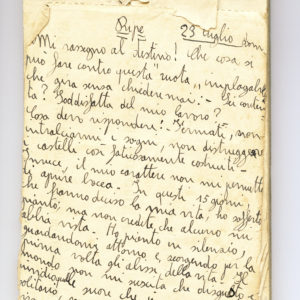 Ripe 23 luglio dom
Mi rassegno al destino! Che cosa si
può fare contro questa ruota implacabile
che gira senza chiedere mai: - Sei contenta
ta? Soddisfatta del mio lavoro?
Cosa devo rispondere: Fermati, non
intralciarmi i sogni, non distruggere
i castelli con fatuosamente costruiti -
Invece, il mio carattere non mi permette
di aprire bocca. In questi 15 giorni
che hanno deciso la mia vita, ho sofferto
pianto, ma non credete che alcuno mi
abbia vista. Ho pianto in silenzio,
guardandomi attorno, e scorgendo per la
prima volta gli abissi della vita. Il
mondo non mi suscita che disgusto
solitario, suore che